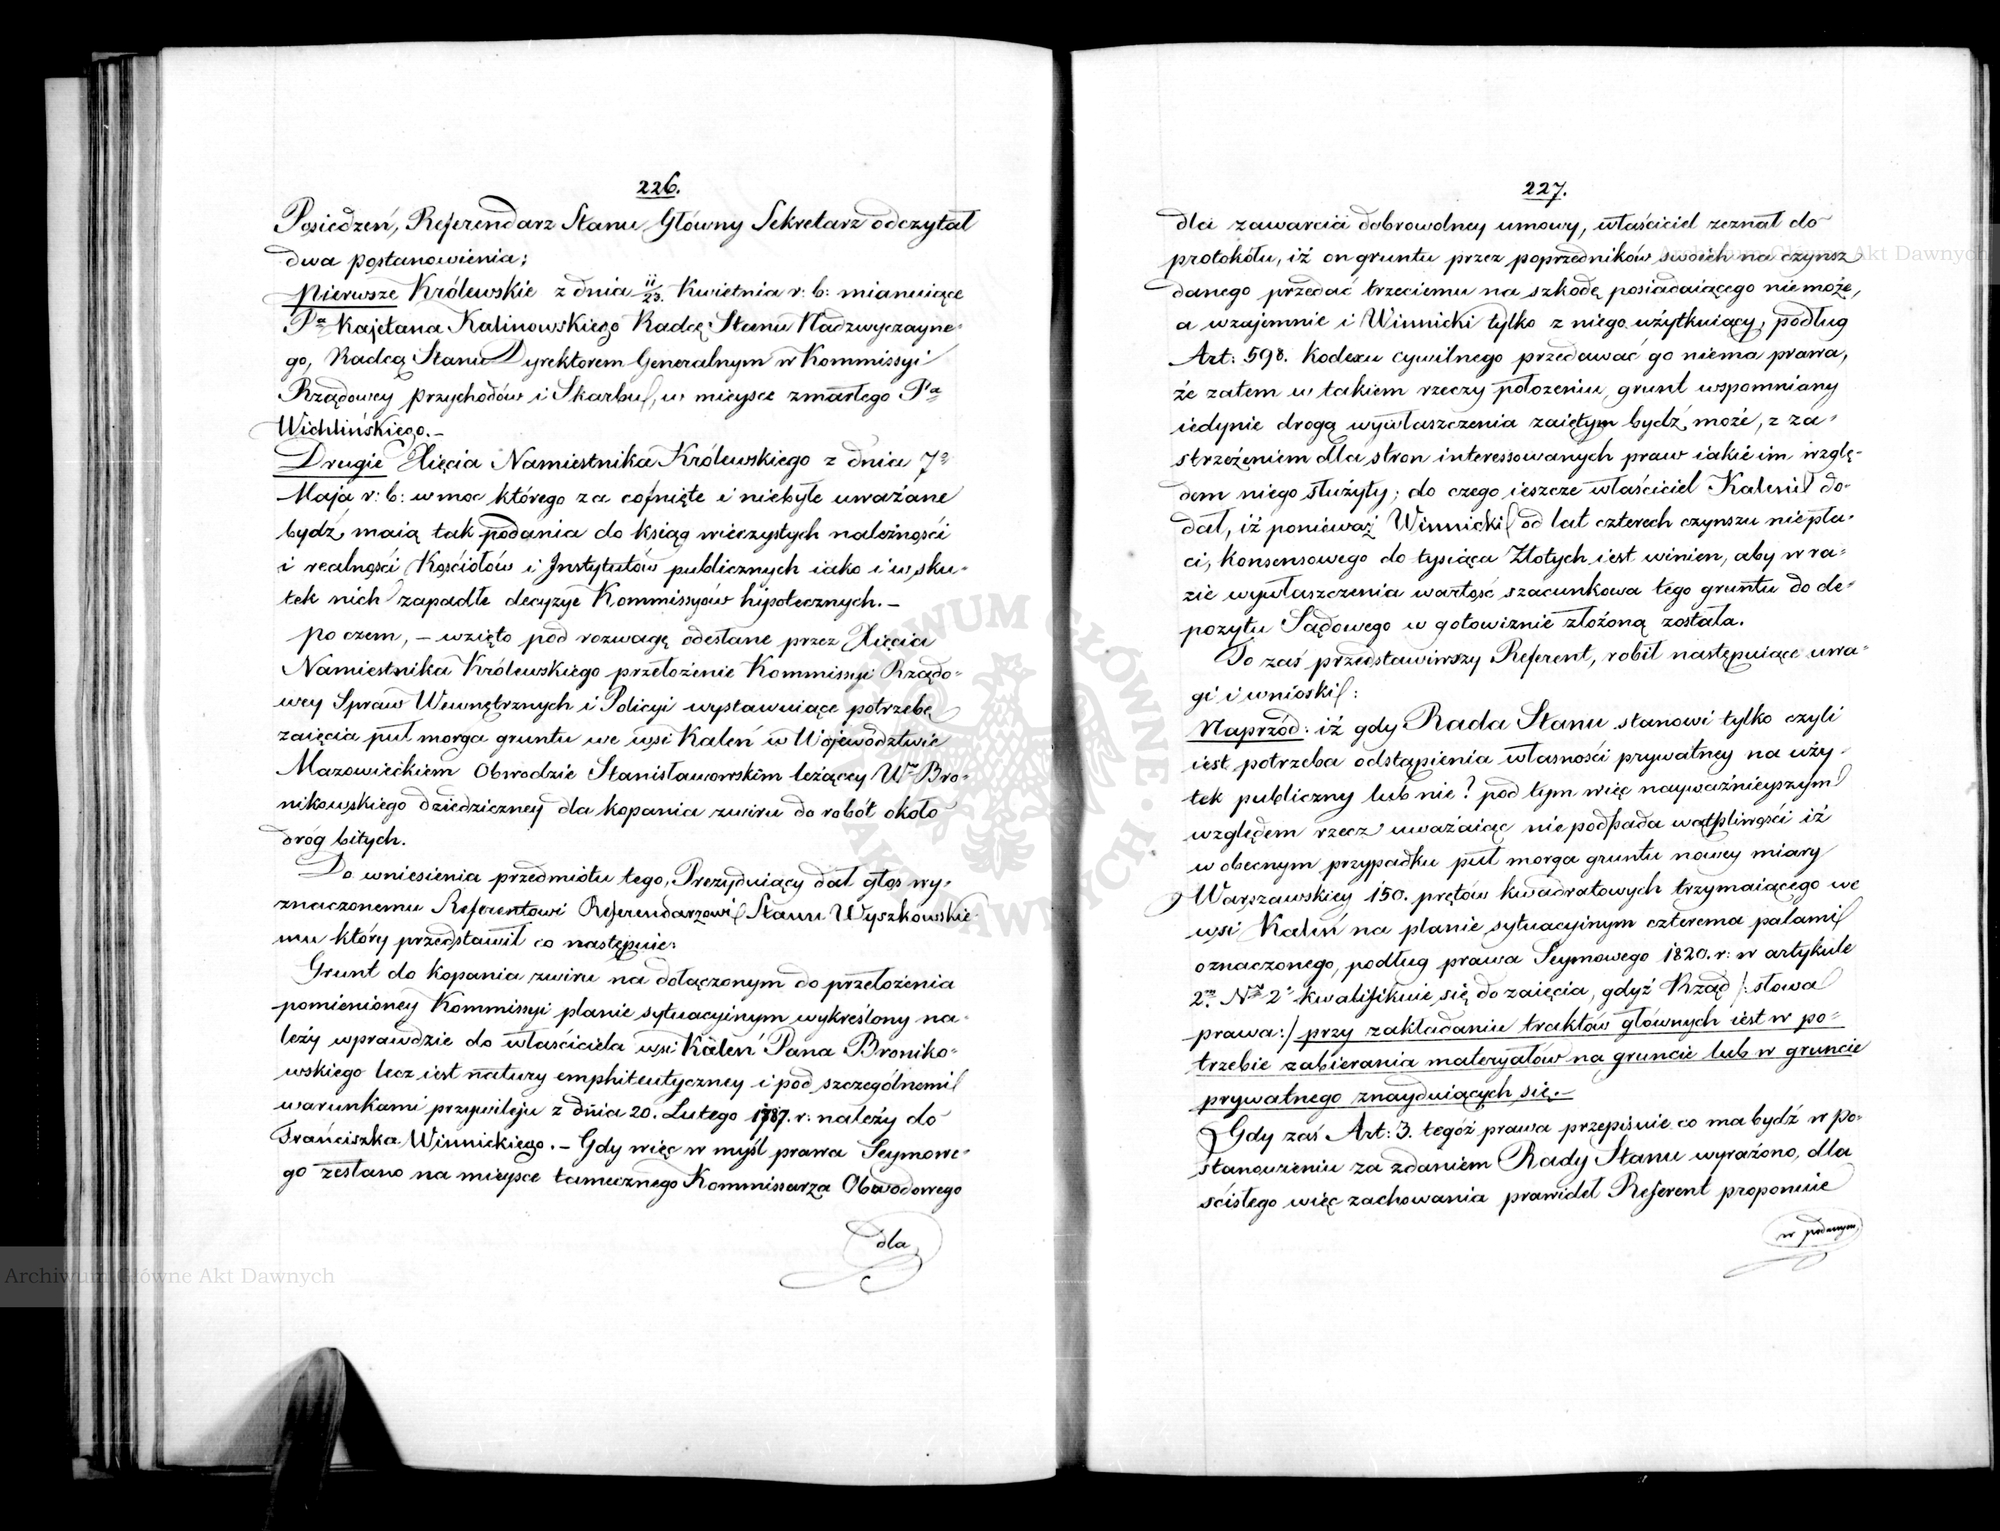 226.
Posiedzeń, Referendarz Stanu Główny Sekretarz odczytał
dwa postanowienia:
Pierwsze Królewskie z dnia 11/23. Kwietnia r: b: mianuiące
Pa Kajetana Kalinowskiego Radcę Stanu Nadzwyczayne-
go, Radcą Stanu Dyrektorem Generalnym w Kommissyi
Rządowey Przychodów i Skarbu, w mieysce zmarłego Pa
Wichlińskiego. –
Drugie Xięcia Namiestnika Królewskiego z dnia 7o
Maja r: b: w moc którego za cofnięte i niebyłe uważane
bydź maią tak podania do ksiąg wieczystych należności
i realności Kościołów i Instytutów publicznych iako i w sku-
tek nich zapadłe decyzye Kommissyów hipotecznych. –
Po czem, – wzięto pod rozwagę odesłane przez Xięcia
Namiestnika Królewskiego przełożenie Kommissyi Rządo-
wey Spraw Wewnętrznych i Policyi wystawuiące potrzebę
zaięcia pół morga gruntu we wsi Kaleń w Województwie
Mazowieckiem Obwodzie Stanisławowskim leżącey Wo Bro-
nikowskiego dziedziczney dla kopania żwiru do robót około
dróg bitych.
Do wniesienia przedmiotu tego, Prezyduiący dał głos wy-
znaczonemu Referentowi Referendarzowi Stanu Wyszkowskie-
mu który przedstawił co następuie:
Grunt do kopania żwiru na dołączonym do przełożenia
pomienioney Kommissyi planie sytuacyinym wykreślony na-
leży wprawdzie do właściciela wsi Kaleń Pana Broniko-
wskiego lecz iest natury emphiteutyczney i pod szczególnemi
warunkami przywileju z dnia 20. Lutego 1787. r: należy do
Franciszka Winnickiego. – Gdy więc w myśl prawa Seymowe-
go zesłano na mieysce tamecznego Kommissarza Obwodowego
dla
227.
dla zawarcia dobrowolney umowy, właściciel zeznał do
protokółu, iż on gruntu przez poprzedników swoich na czynsz
danego przedać trzeciemu na szkodę posiadaiącego nie może,
a wzajemnie i Winnicki tylko z niego użytkuiący, podług
Art: 598. Kodexu cywilnego przedawać go niema prawa,
że zatem w takiem rzeczy położeniu, grunt wspomniany
iedynie drogą wywłaszczenia zaiętym bydź może, z za-
strzeżeniem dla stron interessowanych praw iakie im wzglę-
dem niego służyły; do czego ieszcze właściciel Kalenia do-
dał, iż ponieważ Winnicki od lat czterech czynszu niepła-
ci, konsensowego do tysiąca Złotych iest winien, aby w ra-
zie wywłaszczenia wartość szacunkowa tego gruntu do de-
pozytu Sądowego w gotowiznie złożoną została.
To zaś przedstawiwszy Referent, robił następuiące uwa-
gi i wnioski:
Naprzód: iż gdy Rada Stanu stanowi tylko czyli
iest potrzeba odstąpienia własności prywatney na uży-
tek publiczny lub nie? pod tym więc nayważnieyszym
względem rzecz uważaiąc nie podpada wątpliwości iż
w obecnym przypadku pół morga gruntu nowey miary
Warszawskiey 150. prętów kwadratowych trzymaiącego we
wsi Kaleń na planie sytuacyinym czterema palami
oznaczonego, podług prawa Seymowego 1820. r: w artykule
2m. No 2o kwalifikuie się do zaięcia, gdyż Rząd /: słowa
prawa:/ przy zakładaniu traktów głównych iest w po-
trzebie zabierania materyałów na gruncie lub w gruncie
prywatnego znayduiących się. –
Gdy zaś Art: 3. tegóż prawa przepisuie co ma bydź w po-
stanowieniu za zdaniem Rady Stanu wyrażono, dla
ścisłego więc zachowania prawideł Referent proponuie
w podanym
Archiwum Główne Akt Dawnych
Archiwum Główne Akt Dawnych
ARCHIWUM GŁÓWNE AKT DAWNYCH